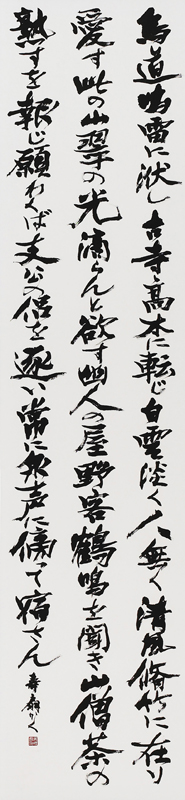 鳥道幽雷に洑し古寺高木に転じ白雲淡く人無く清風脩竹に在り
愛す此の山翠の光滴らんと欲す幽人の屋野客鶴鳴を聞き山僧茶の
熟すを報じ願わくば支公の侶を逐い常に泉声に傍って宿さん